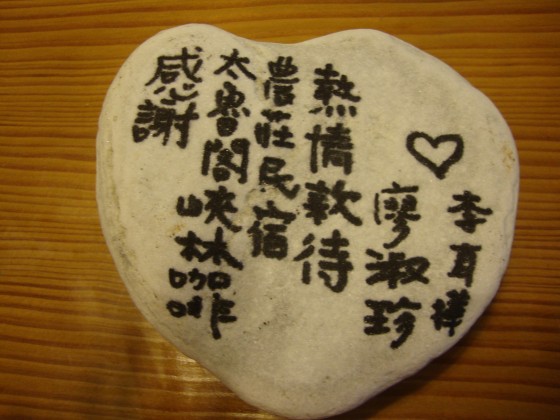 感謝
太魯閣峽林咖啡
農莊民宿
熱情款待
廖淑珍
李